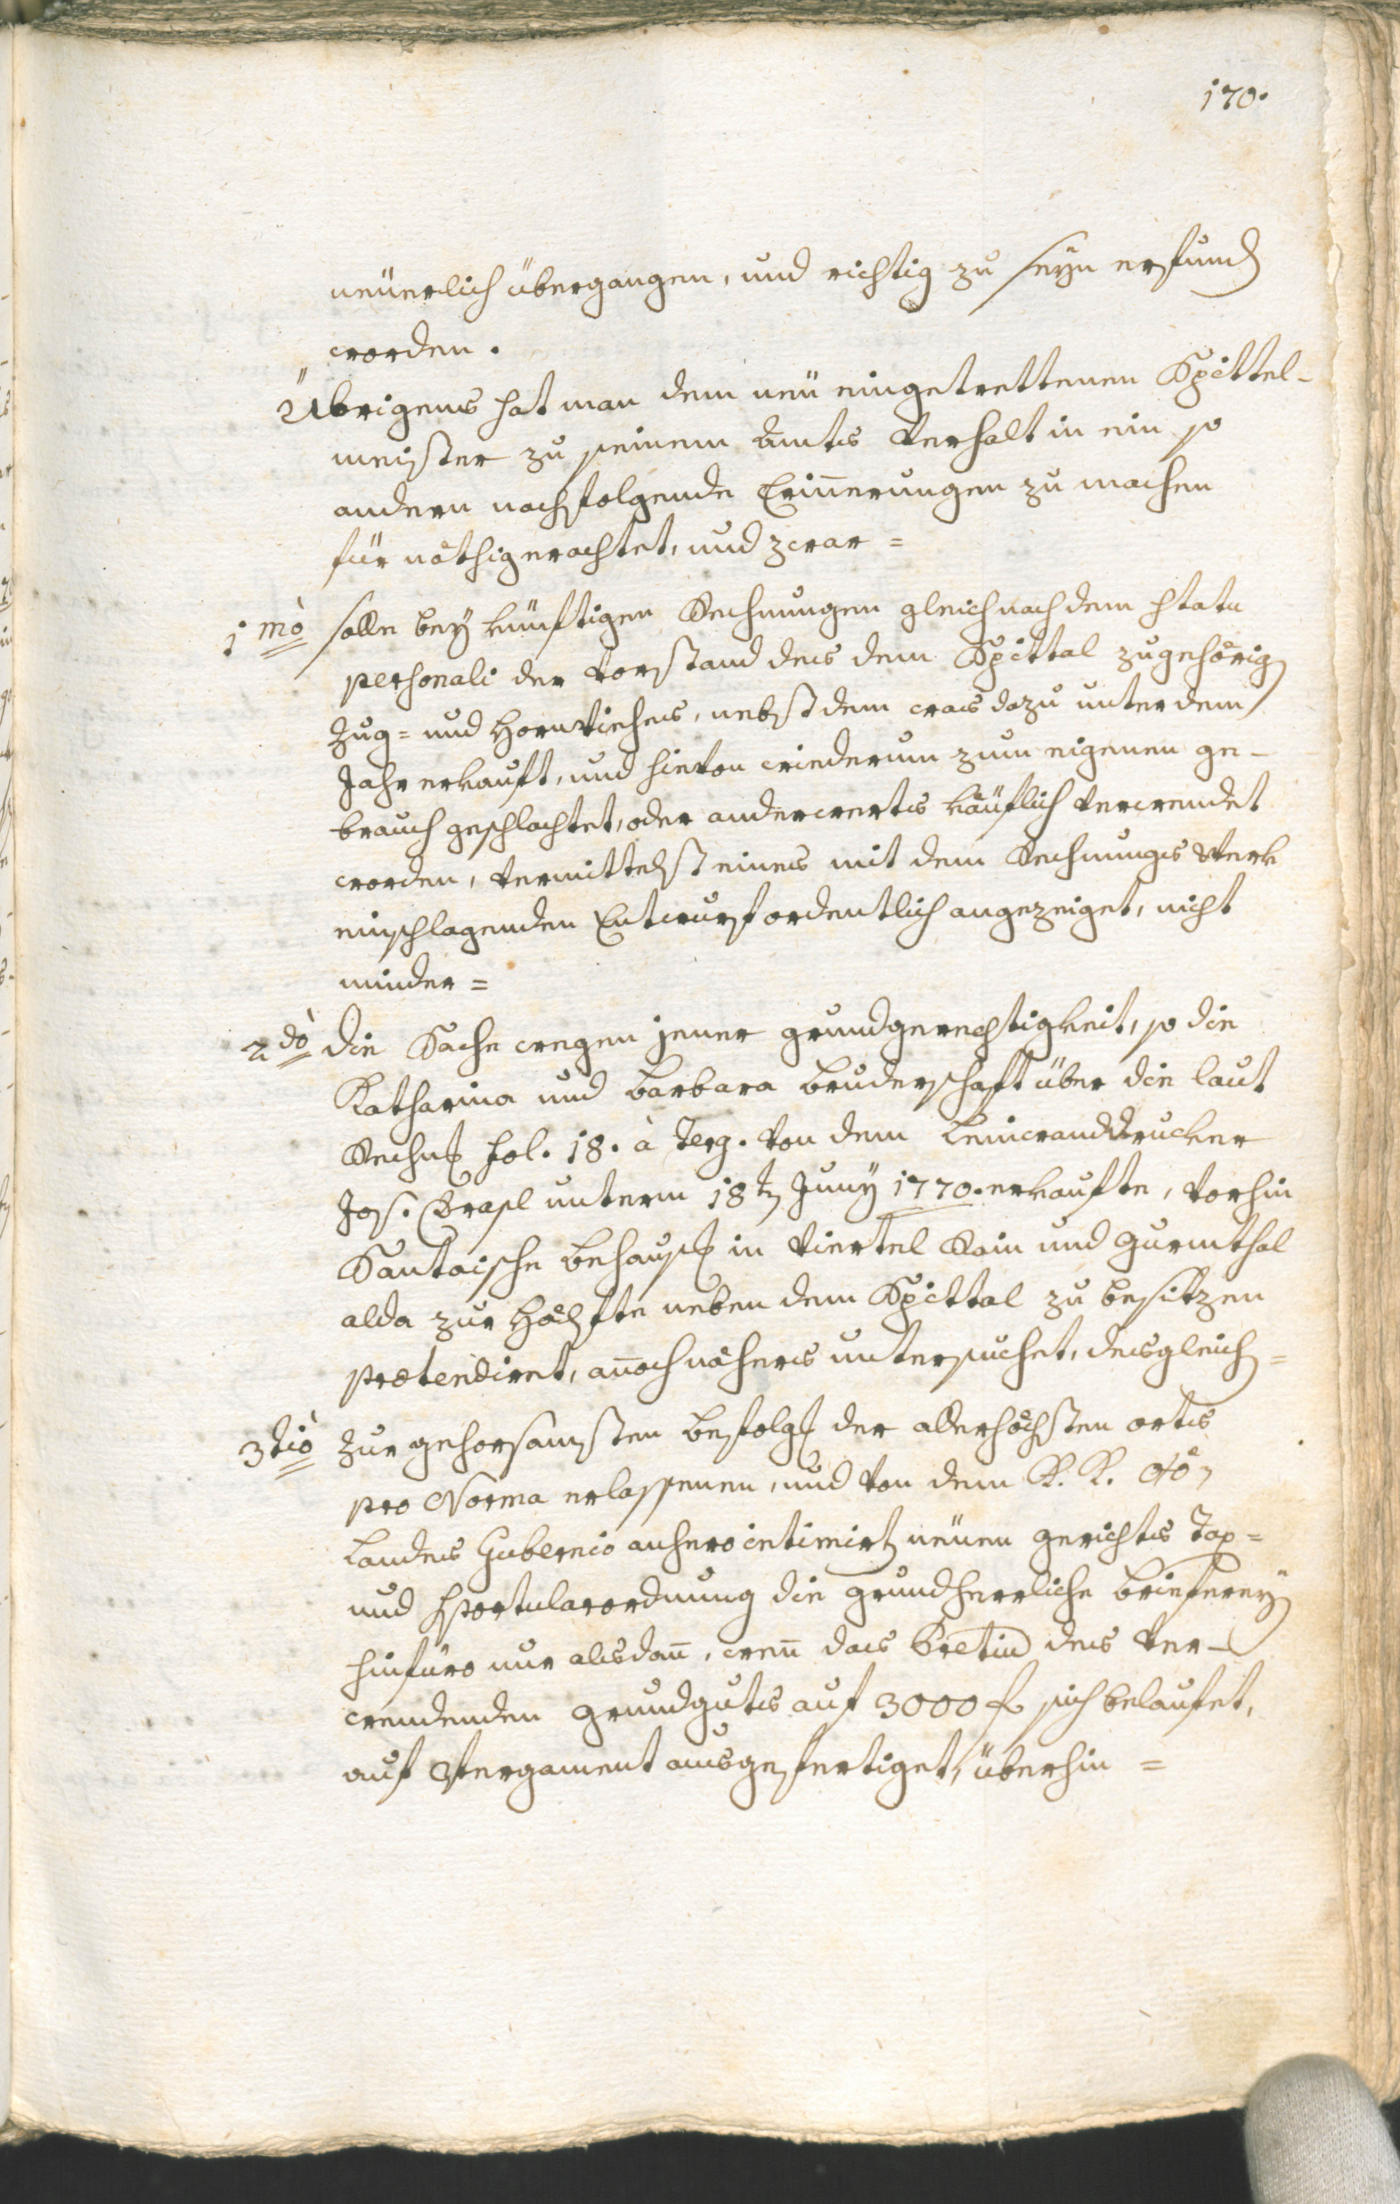 170.
neüerlich übergangen, und richtig zu seyn erfunden
worden.
Übrigens hat man dem neü eingetrettenen Spittel-
meister zu seinem Amts Verhalt in ein so
andern nachfolgende Erinnerungen zu machen
für nöthig erachtet, und zwar =
1mò solle bey künftigen Rechnungen gleich nach dem statu
personali der Vorstand des dem Spittal zugehörigen
Zug= und Hornviehes, nebst dem was dazu unter dem
Jahr erkauft, und hievon wiederum zum eigenen ge-
brauch geschlachtet, oder anderwerts käüflich verwendet
worden, vermittelst eines mit dem Rechnungs Werk
einschlagenden Entwurf ordentlich angezeiget, nicht
minder =
2dò die Sache wegen jener grundgerechtigkeit, so die
Katharina und Barbara Bruderschaft über die laut
Rechng fol. 18. à Terg. von dem Leinwanddrucker
Jos. Grasl unterm 18ten Juny 1770. erkaufte, vorhin
Santaische behausg in Viertel Rain und Gurmthal
alda zur Hälfte neben dem Spittal zu besitzen
prætendiret, annoch nähers untersuchet, desgleichen =
3tiò zur gehorsamsten befolgg der allerhöchsten orts
pro Norma erlassenen, und von dem K. K. OÖ.
Landes Gubernio anhero intimirten neüen gerichts Tax=
und Sportularordnung die grundherrliche briefereyen
hinfüro nur alsdann, wenn das Pretium des ver-
wendenden grundguts auf 3000 f. sich belaufet,
auf Pergament ausgefertiget, überhin =